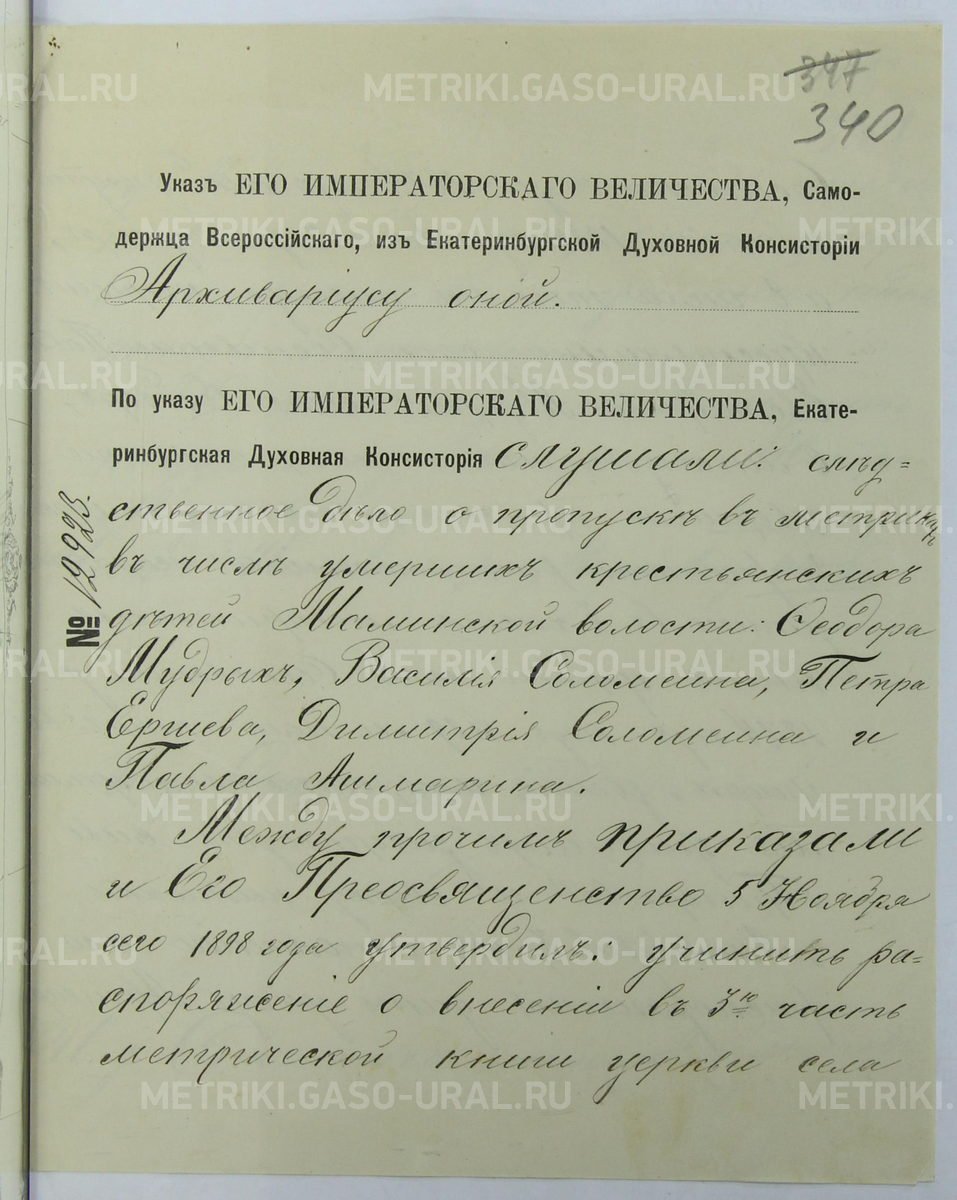 347
340
Указъ ЕГО ИМПЕРАТОРСКАГО ВЕЛИЧЕСТВА, Само-
держца Всероссійскаго, изъ Екатеринбургской Духовной Консисторіи
Архиваріусу оной.
По указу ЕГО ИМПЕРАТОРСКАГО ВЕЛИЧЕСТВА, Екате-
ринбургская Духовная Консисторія слушали: слѣд=
ственное дѣло о пропускѣ въ метрикахъ
въ числѣ умершихъ крестьянскихъ
№ 12992
дѣтей Маминской волости: Ѳеодора
Мудрыхъ, Василія Соломеина, Петра
Ергиева, Димитрія Соломеина и
Павла Ашмарина.
Между прочимъ приказали
и Его Преосвященство 5 Ноября
сего 1898 года утвердилъ: учинить ра=
споряженіе о внесеніи въ 3ю часть
метрической книги церкви села
METRIKI.GASO-URAL.RU